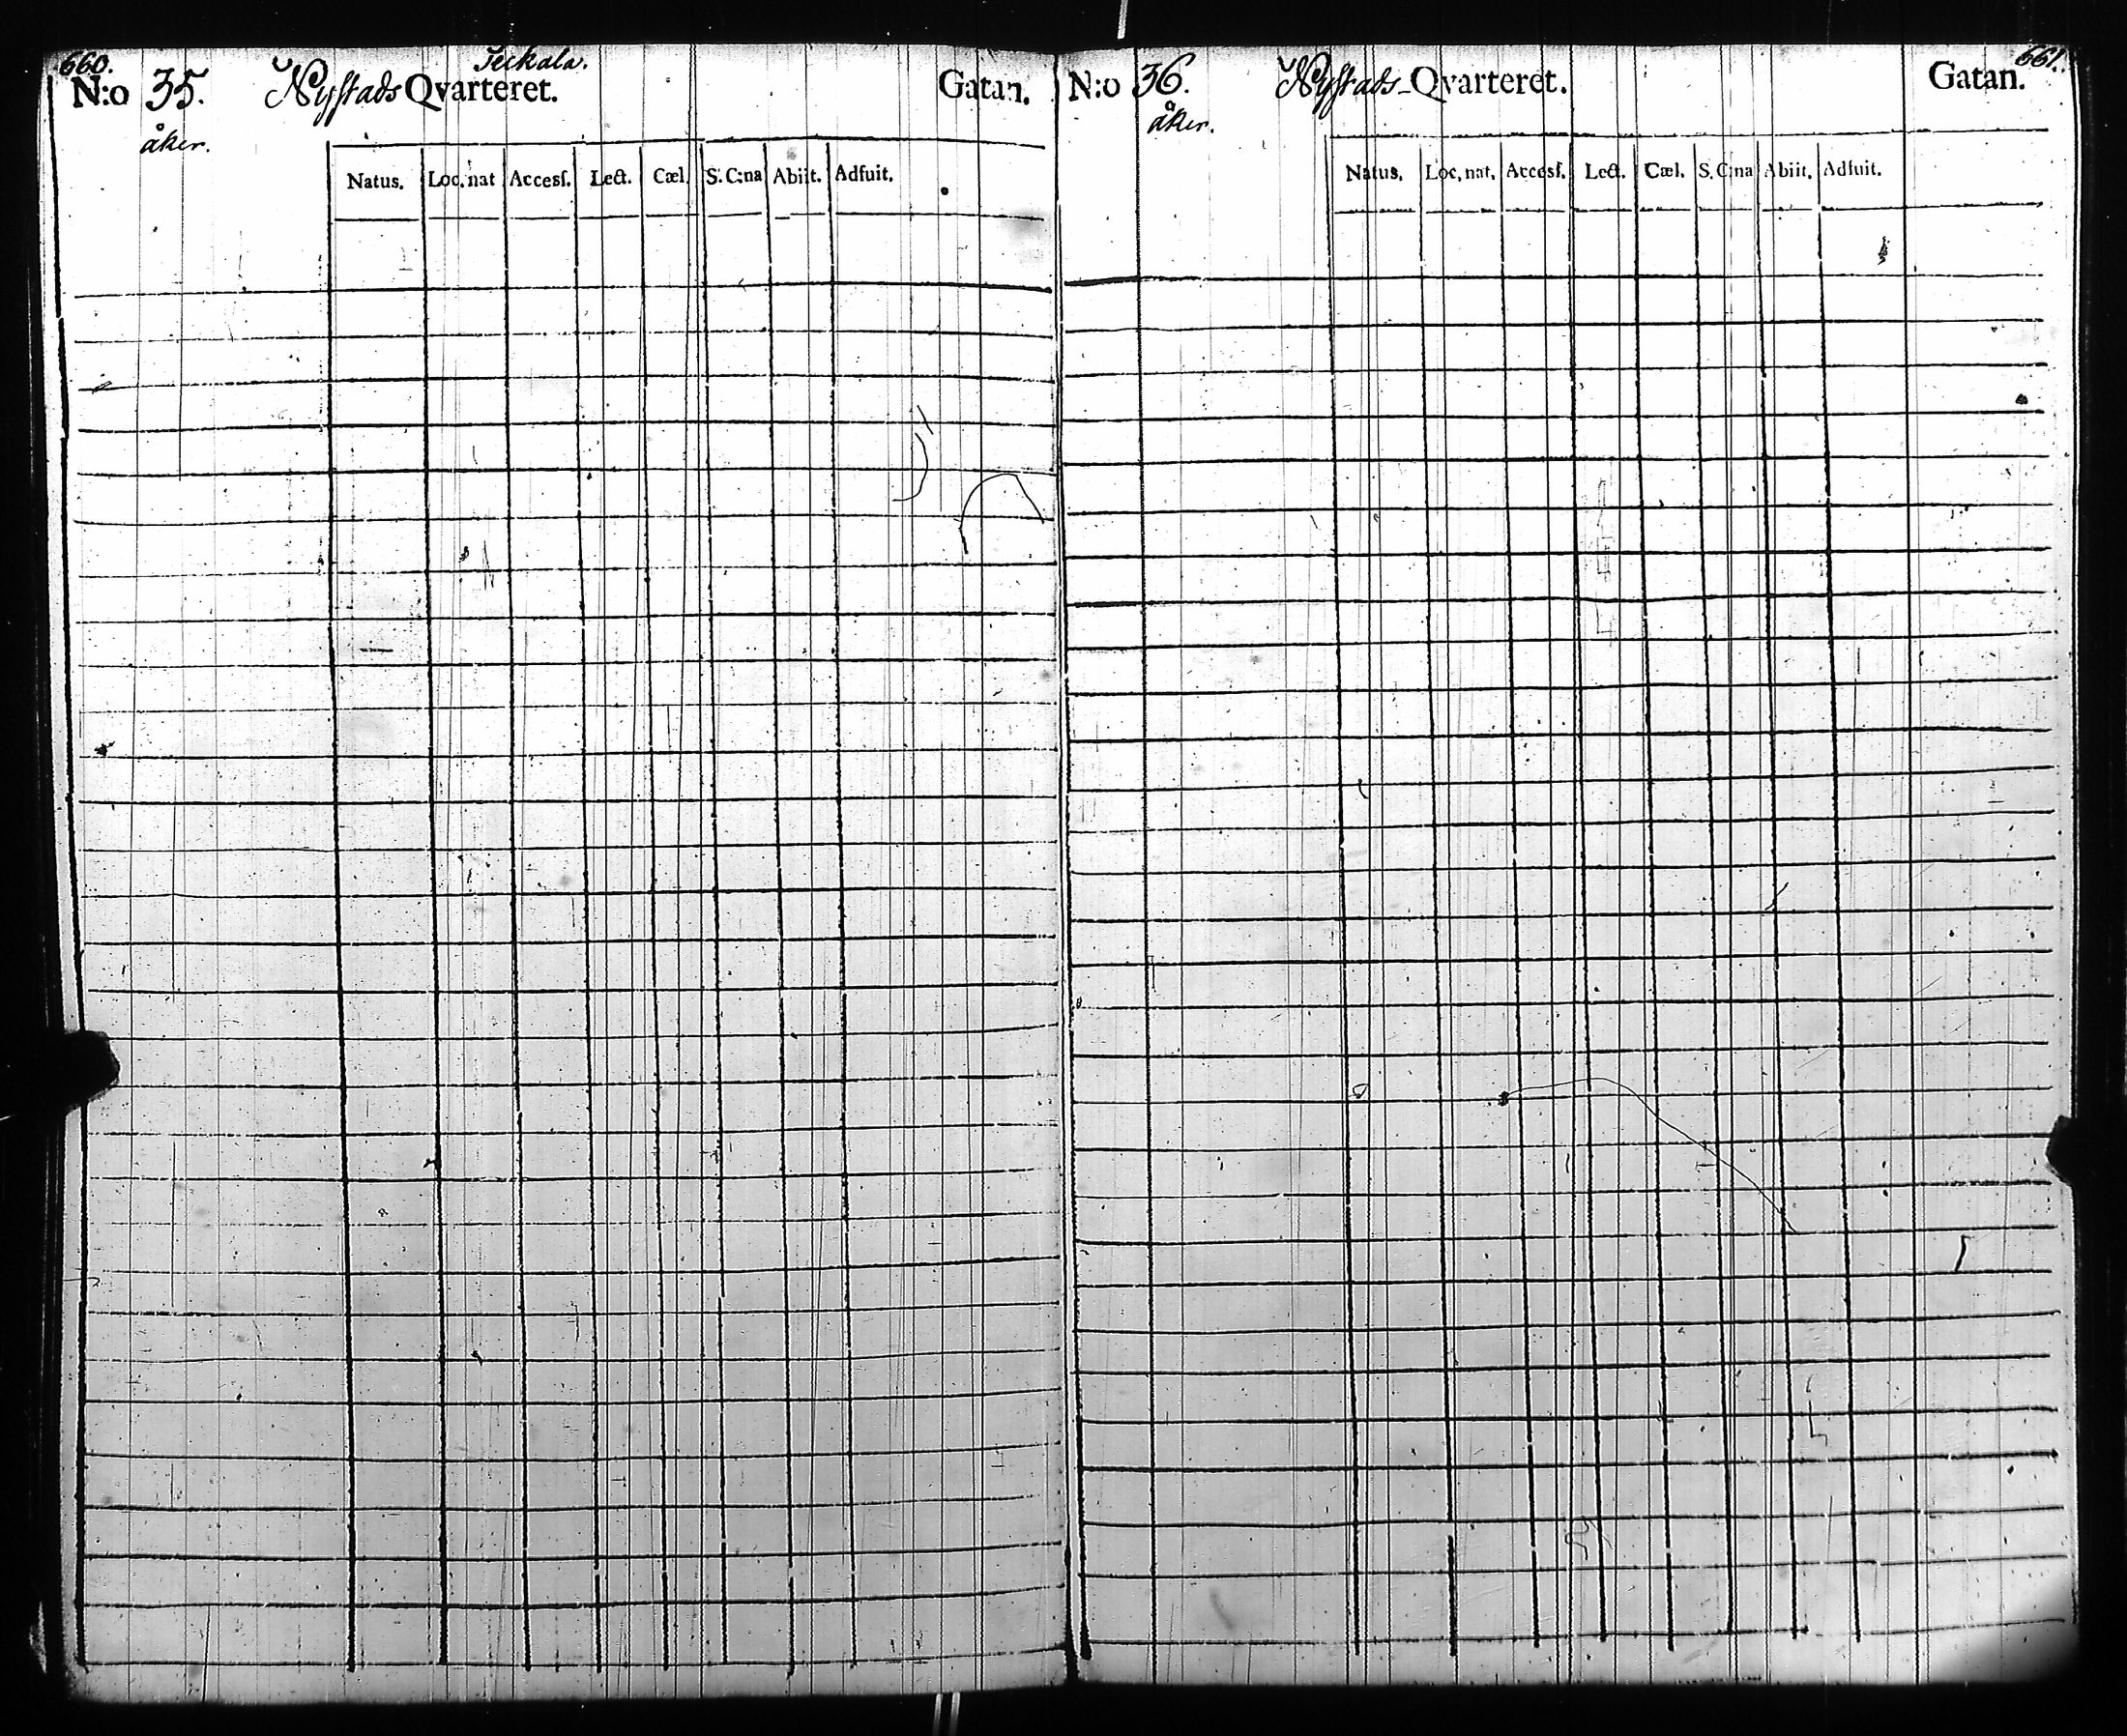 660.
Teckala.
N:o 35. Nystads Qvarteret. Gatan.
åker.
Natus. Loc. nat Accesſ. Lect. Cæl. S. C:na Abiit. Adfuit.
661.
N:o 36. Nystads-Qvarteret. Gatan.
åker.
Natus. Loc. nat. Accesſ. Lect. Cæl. S. C:na Abiit. Adfuit.